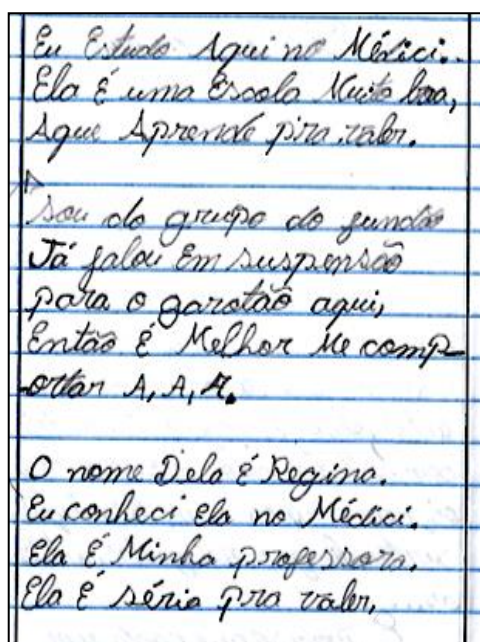 Eu Estudo Aqui no Médici.
Ela É uma Escola Muito boa,
Aque Aprende pra valer.
Sou do grupo do fundão
Já falou Em suspensão
para o garotão aqui,
Então É Melhor Me comp-
ortar A, A, A.
O nome Dela É Regina.
Eu conheci Ela no Médici.
Ela É Minha professora.
Ela É séria pra valer.